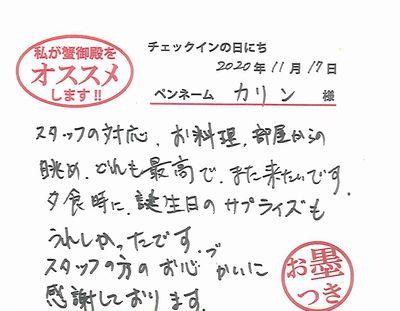 私が蟹御殿を
オススメ
します!!
チェックインの日にち
2020年11月17日
ペンネーム カリン 様
スタッフの対応、お料理、部屋からの
眺め、どれも最高で、また来たいです。
夕食時に、誕生日のサプライズも
うれしかったです。
スタッフの方のお心づかいに
感謝しております。
お墨つき